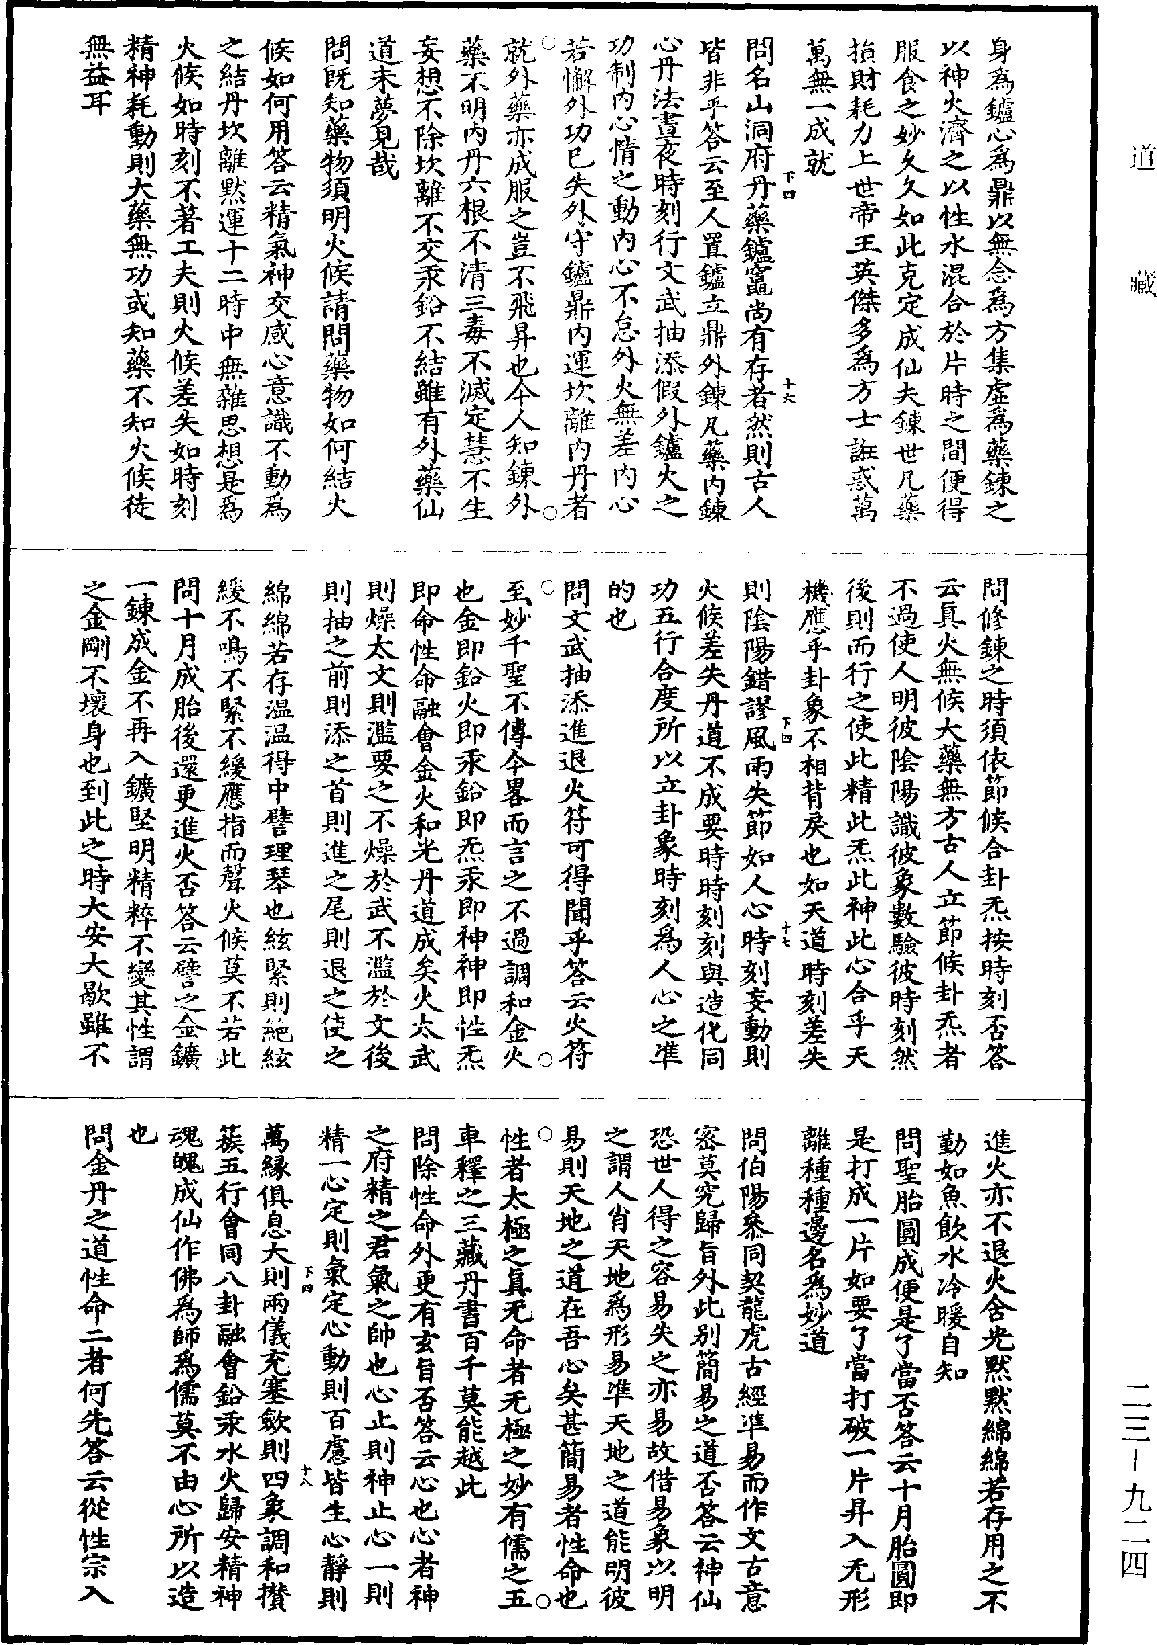 道藏
身為鑪心爲鼎以無念為方集虛爲藥鍊之
以神火濟之以性水混合於片時之間便得
服食之妙久久如此克定成仙夫鍊世凡藥
損財耗力上世帝王英傑多爲方士誑惑萬
萬無一成就
下四
十六
問名山洞府丹藥鑪竈尚有存者然則古人
皆非乎答云至人置鑪立鼎外鍊凡藥內鍊
心丹法晝夜時刻行文武抽添假外鑪火之
功制內心情之動內心不怠外火無差內心
若懈外功已失外守鑪鼎內運坎離內丹者
就外藥亦成服之豈不飛昇也今人知鍊外
藥不明內丹六根不清三毒不滅定慧不生
妄想不除坎離不交汞鉛不結雖有外藥仙
道未夢見哉
問既知藥物須明火候請問藥物如何結火
候如何用答云精氣神交感心意識不動爲
之結丹坎離默運十二時中無雜思想是爲
火候如時刻不著工夫則火候差失如時刻
精神耗動則大藥無功或知藥不知火候徒
無益耳
問修鍊之時須依節候合卦炁按時刻否答
云真火無候大藥無方古人立節候卦炁者
不過使人明彼陰陽識彼象數驗彼時刻然
後則而行之使此精此炁此神此心合乎天
機應乎卦象不相背戾也如天道時刻差失
下四
十七
則陰陽錯謬風雨失節如人心時刻妄動則
火候差失丹道不成要時時刻刻與造化同
功五行合度所以立卦象時刻爲人心之準
的也
問文武抽添進退火符可得聞乎答云火符
至妙千聖不傳今畧而言之不過調和金火
也金即鉛火即汞鉛即炁汞即神神即性炁
即命性命融會金火和光丹道成矣火太武
則燥太文則濫要之不燥於武不濫於文後
則抽之前則添之首則進之尾則退之使之
綿綿若存温温得中譬理琴也絃緊則絶絃
緩不鳴不緊不緩應指而聲火候莫不若此
問十月成胎後還更進火否答云譬之金鑛
一鍊成金不再入鑛堅明精粹不變其性謂
之金剛不壞身也到此之時大安大歇雖不
進火亦不退火含光默默綿綿若存用之不
勤如魚飲水冷暖自知
問聖胎圓成便是了當否答云十月胎圓即
是打成一片如要了當打破一片昇入无形
離種種邊名爲妙道
問伯陽叅同契龍虎古經準易而作文古意
密莫究歸旨外此別簡易之道否答云神仙
恐世人得之容易失之亦易故借易象以明
之謂人肖天地爲形易準天地之道能明彼
易則天地之道在吾心矣甚簡易者性命也
性者太極之真无命者无極之妙有儒之五
車釋之三藏丹書百千莫能越此
問除性命外更有玄旨否答云心也心者神
之府精之君氣之帥也心止則神止心一則
精一心定則氣定心動則百慮皆生心靜則
下四
十八
萬緣俱息大則兩儀充塞歛則四象調和攢
蔟五行會同八卦融會鉛汞水火歸安精神
魂魄成仙作佛爲師爲儒莫不由心所以造
也
問金丹之道性命二者何先答云從性宗入
二三—九二四